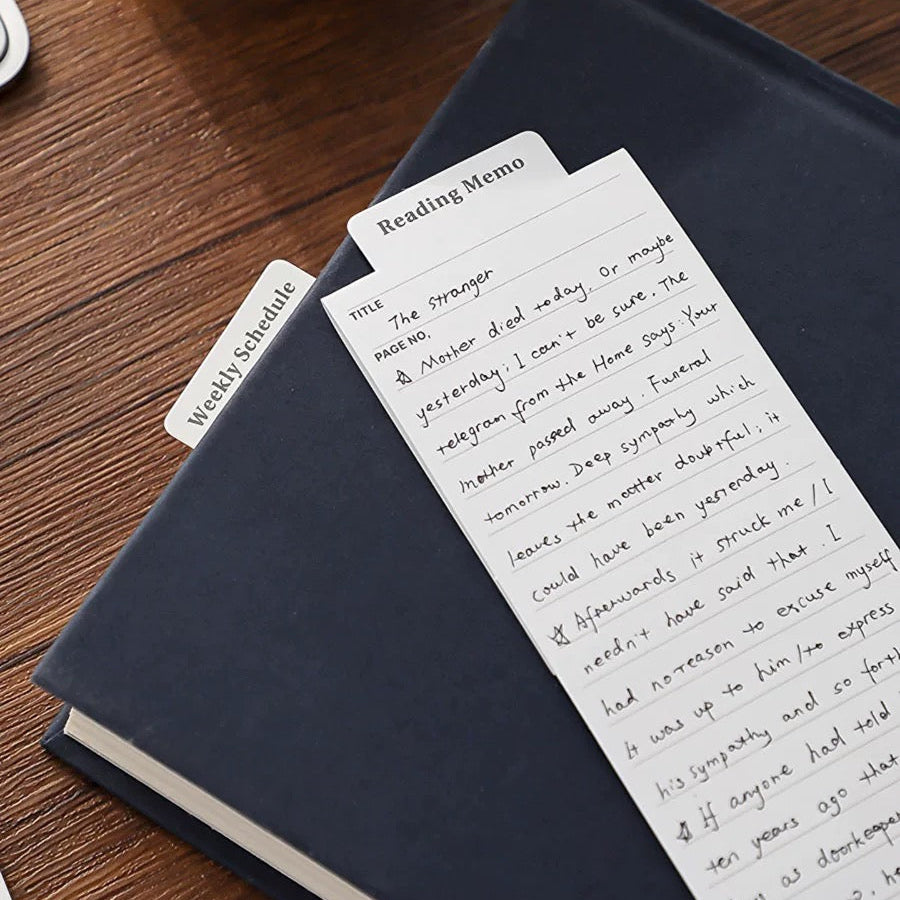 Reading Memo
Weekly Schedule
TITLE
The stranger
PAGE NO.
☆ Mother died today. Or maybe
yesterday; I can't be sure. The
telegram from the Home says: Your
mother passed away. Funeral
tomorrow. Deep sympathy which
leaves the matter doubtful; it
could have been yesterday.
☆ Afterwards it struck me / I
needn't have said that. I
had no reason to excuse myself
it was up to him / to express
his sympathy and so forth
☆ If anyone had told
ten years ago that
as doorkeeper